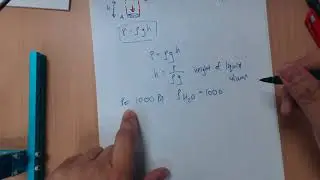 h A
P = ρgh
P = ρgh
h = P/ρg height of liquid column
P = 1000 Pa ρH₂O = 1000